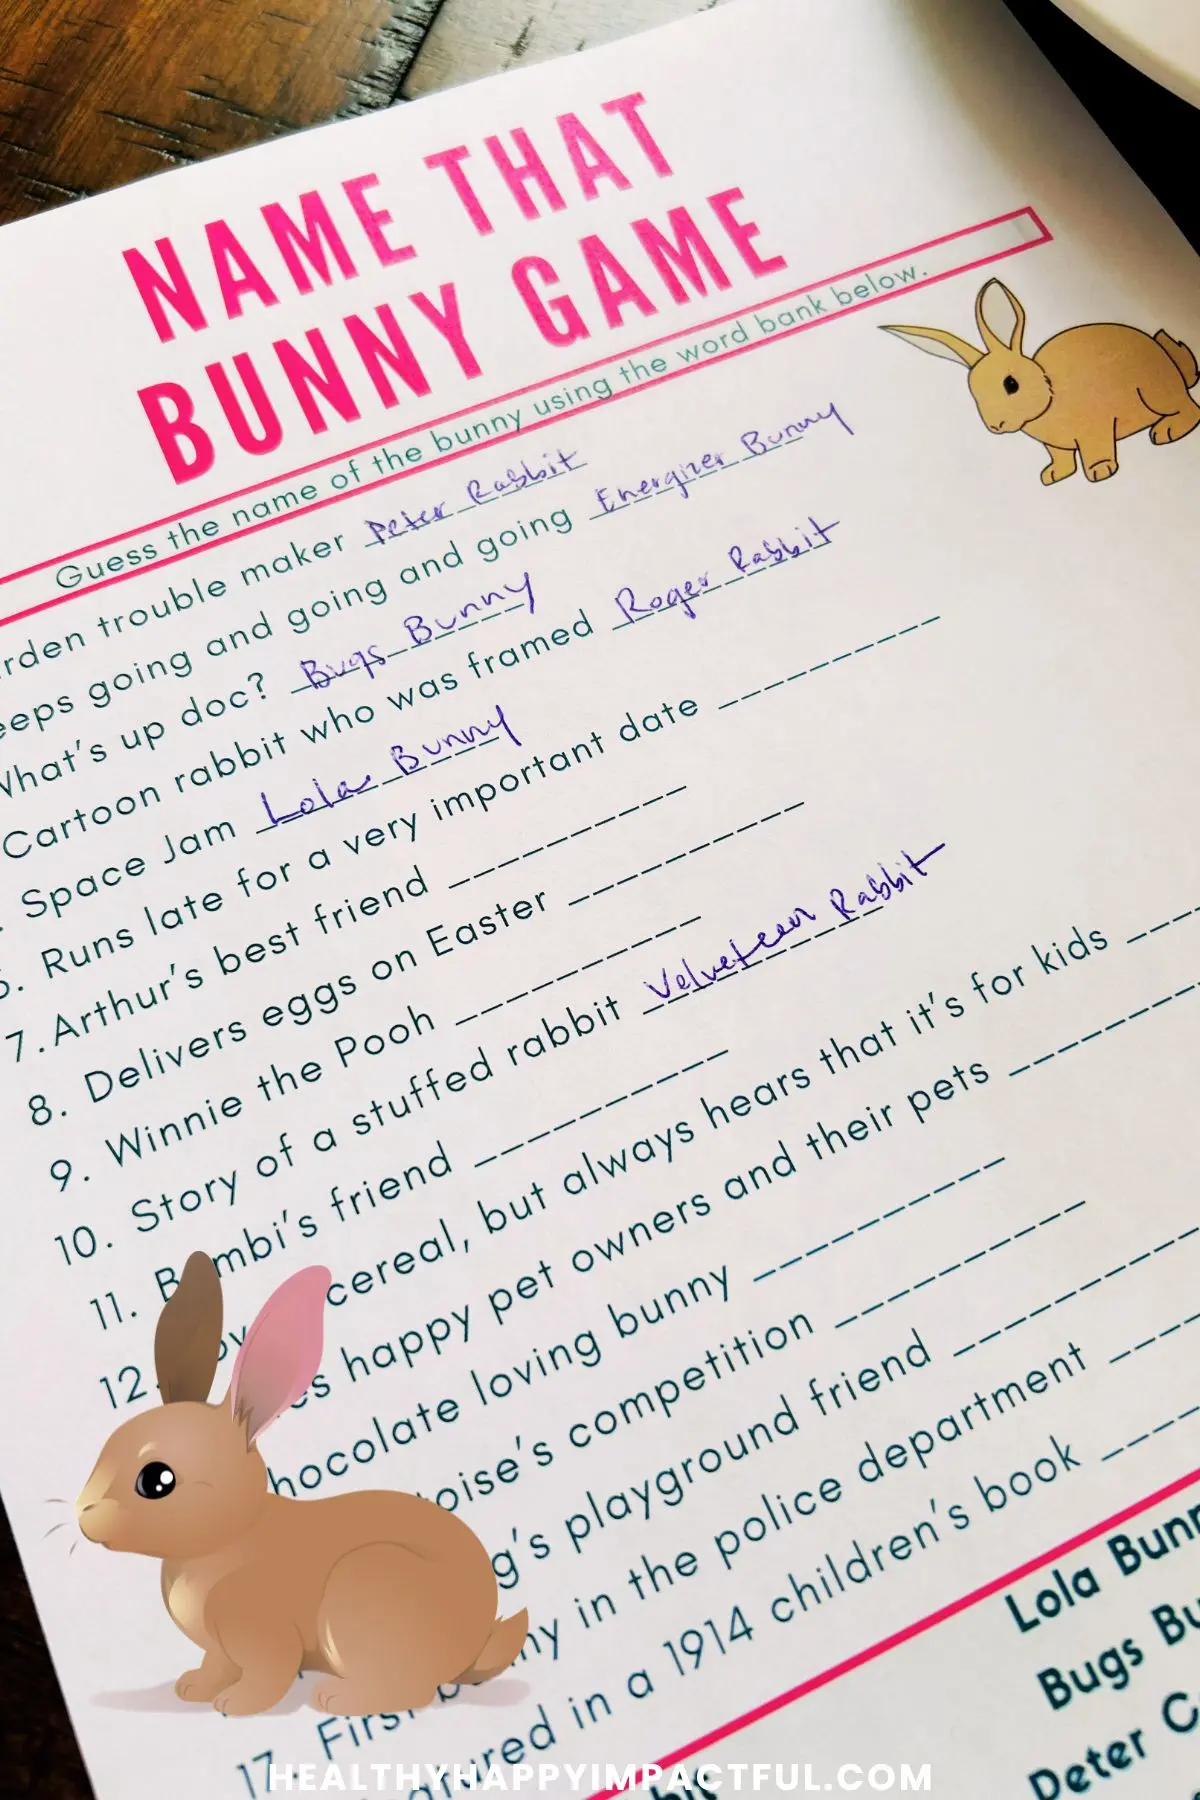 NAME THAT
BUNNY GAME
Guess the name of the bunny using the word bank below.
trouble maker Peter Rabbit
going and going and going Energizer Bunny
What's up doc? Bugs Bunny
Cartoon rabbit who was framed Roger Rabbit
Space Jam Lola Bunny
Runs late for a very important date
7. Arthur's best friend
8. Delivers eggs on Easter
9. Winnie the Pooh
10. Story of a stuffed rabbit Velveteen Rabbit
11. friend
12. cereal, but always hears that it's for kids
happy pet owners and their pets
loving bunny
competition
playground friend
17. First in the police department
in a 1914 children's book
Lola
Bugs
Peter
HEALTHYHAPPYIMPACTFUL.COM